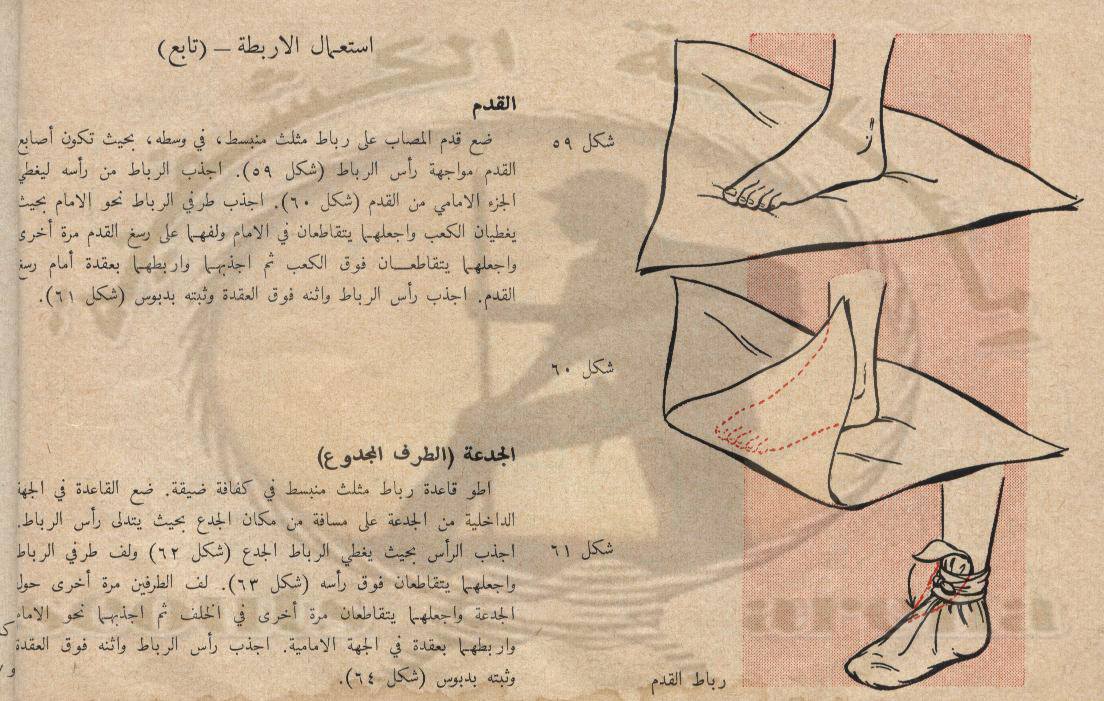 استعمال الاربطة – (تابع)
القدم
ضع قدم المصاب على رباط مثلث منبسط، في وسطه، بحيث تكون أصابع
القدم مواجهة رأس الرباط (شكل ٥٩). اجذب الرباط من رأسه ليغطي
الجزء الامامي من القدم (شكل ٦٠). اجذب طرفي الرباط نحو الامام بحيث
يغطيان الكعب واجعلهما يتقاطعان في الامام ولفهما على رسغ القدم مرة أخرى
واجعلهما يتقاطعان فوق الكعب ثم اجذبهما واربطهما بعقدة أمام رسغ
القدم. اجذب رأس الرباط واثنه فوق العقدة وثبته بدبوس (شكل ٦١).
الجدعة (الطرف المجدوع)
اطو قاعدة رباط مثلث منبسط في كفافة ضيقة. ضع القاعدة في الجهة
الداخلية من الجدعة على مسافة من مكان الجدع بحيث يتدلى رأس الرباط.
اجذب الرأس بحيث يغطي الرباط الجدع (شكل ٦٢) ولف طرفي الرباط
واجعلهما يتقاطعان فوق رأسه (شكل ٦٣). لف الطرفين مرة أخرى حول
الجدعة واجعلهما يتقاطعان مرة أخرى في الخلف ثم اجذبهما نحو الامام
واربطهما بعقدة في الجهة الامامية. اجذب رأس الرباط واثنه فوق العقدة
وثبته بدبوس (شكل ٦٤).
شكل ٥٩
شكل ٦٠
شكل ٦١
رباط القدم